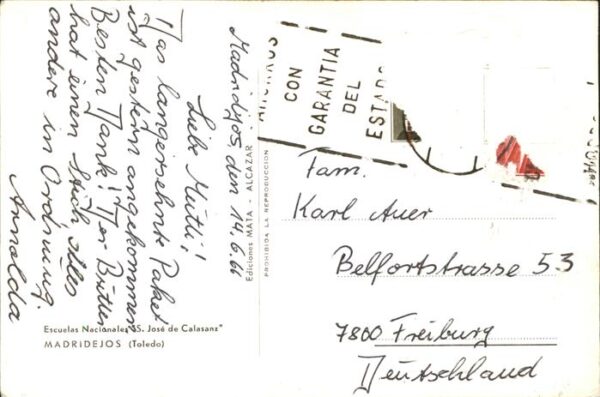 Madridejos den 14.6.66
Liebe Mutti!
Das langersehnte Paket
ist gestern angekommen
Besten Dank! Der Butter
hat einen Stich alles
andere in Ordnung.
Arnolda
Escuelas Nacionales "S. José de Calasanz"
MADRIDEJOS (Toledo)
Ediciones MATA - ALCAZAR -
PROHIBIDA LA REPRODUCCION
AHORROS
CON
GARANTIA
DEL
ESTADO
Fam.
Karl Auer
Belfortstrasse 53
7800 Freiburg
Deutschland